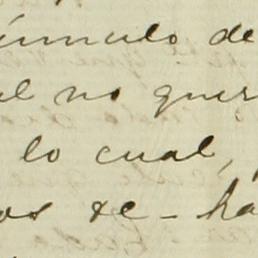 úmulo de
al no quer
lo cual,
os se - ha